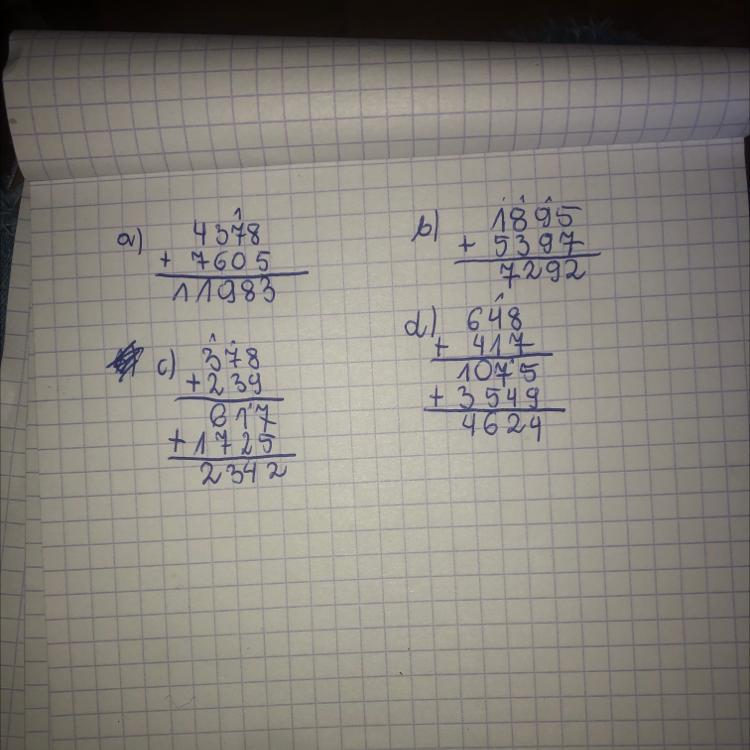 a) 4378
+ 7605
11983
b) 1895
+ 5397
7292
c) 378
+ 239
617
+ 1725
2342
d) 648
+ 417
1075
+ 3549
4624